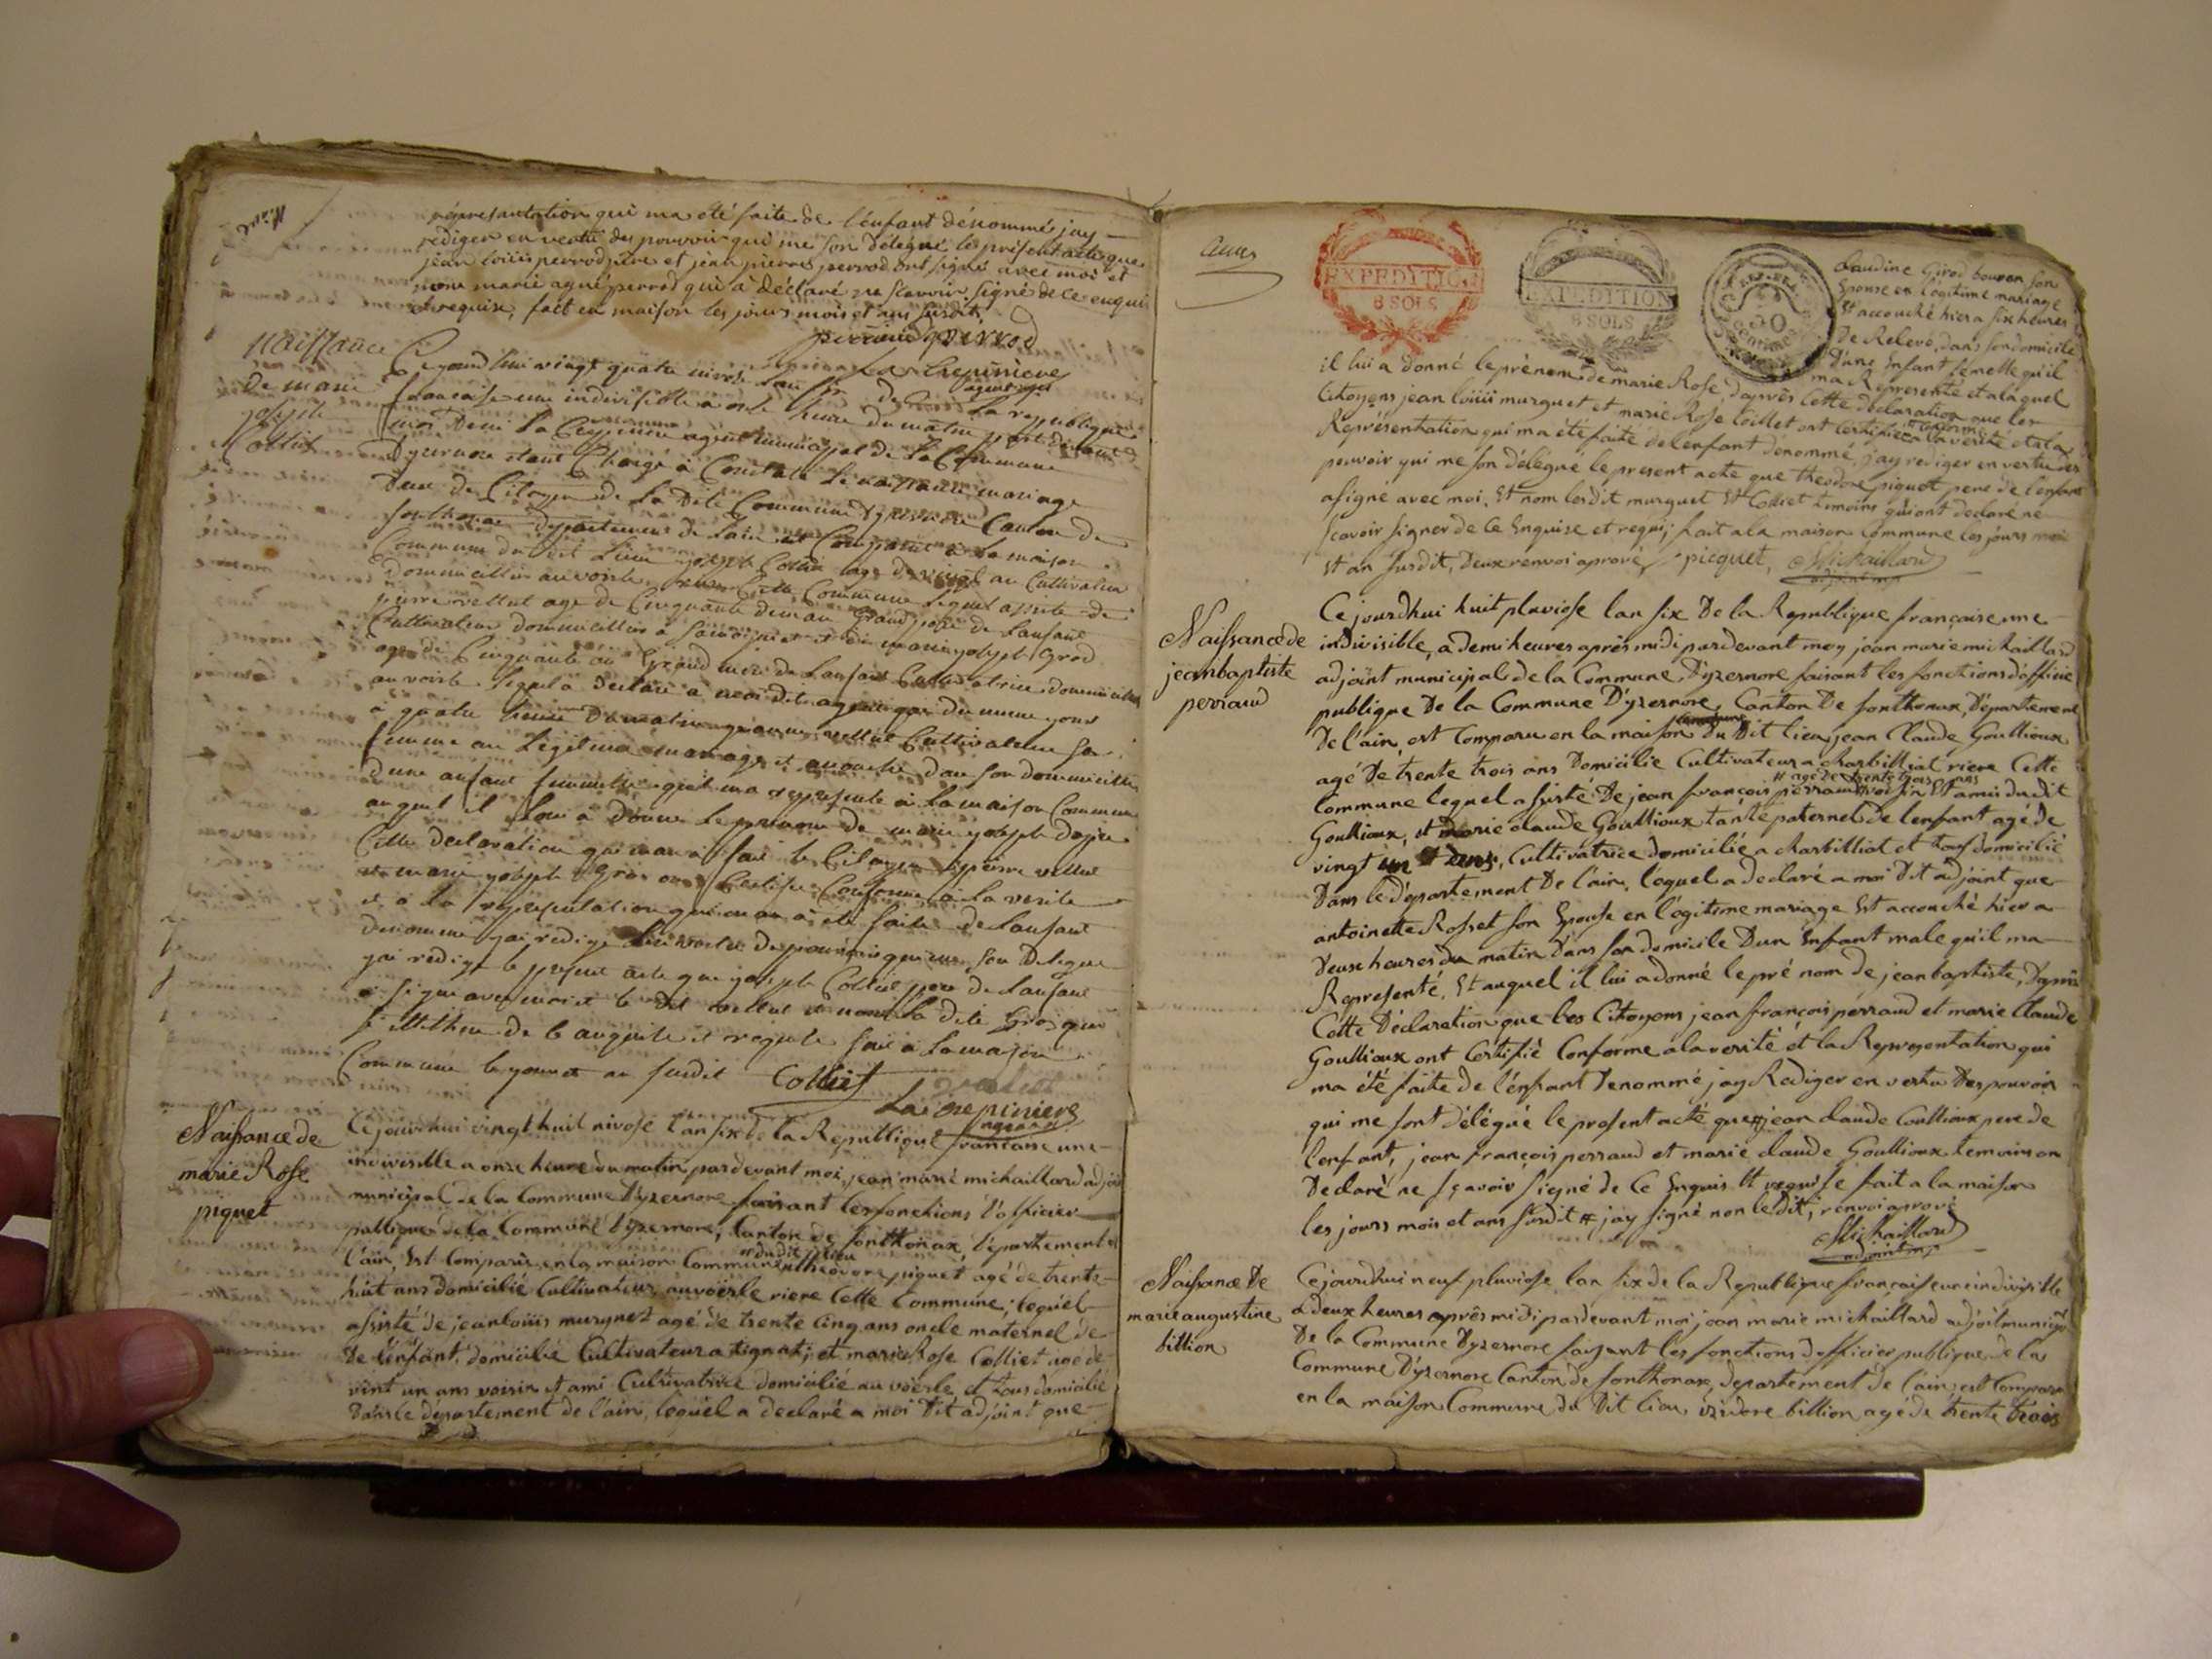 représantation qui ma été faite de l'enfant dénommé jay
rediger en vertu des pouvoir qui me son délégué le présent acte que
jean louiis perrod père et jean pierre perrod ont signé avec moi et
nom marie agné perrod qui a déclaré ne scavoir signé de ce enquis
et requise, fait en maison les jours mois et ans susdit
perrod
La Crepiniere
agent
Naissance
De marie
joseph
Colliet
Ce jourd'hui vingt quatre nivose l'an six de La republique
francaise une indivisible a onze heure du matin par devant
moi La Crepiniere agent municipal de La Commune
Dyzernore etant Charge a Constate Le naissance mariage
Deces de Citoyen de La Dite Commune Dyzernore Canton de
sonthonax departement de Lain est Comparut a La maison
Commune du dit Lieu joseph Colliet age de vingt an Cultivateur
Domicillier au voirle Cette Commune Lequel assiste de
pierre vellut age de Cinquante deux an Grand pere de Lanfant
Cultivateur domicillier a et de marie joseph Grod
age de Cinquante an Grand mere de Lanfant Cultivatrice domicilier
au voirle Lequel a Declare a moi Dit agent que du meme jour
a quatre heure Du matin jeanne vellut Cultivateur sa
femme an Legitime mariage et acouche dan son dommicille
dune anfant fumelle quil ma represente a La maison Commune
auquel il Loui a Donne Le prenom de marie joseph Dapre
Cette declaration que mon a fait le Citoyen pierre vellut
et marie joseph Gro on Certifie Conforme a La verite
et a La representation qui man a ete faite de Lanfant
denomme jai redige an vertu de pouvoir que me son Delegue
jai redige le present acte que joseph Colliet pere de Lanfant
a signe avec moi et le dit vellut et non La dite Gro que
de le anquite et requite fait a La mayson
Commune le jour et an susdit Colliet
La Crepiniere
agent
Naissance de
marie Rose
piquet
Ce jourdhui vingt huit nivose l'an six de la Republique francaise une
indivisible a onze heure du matin pardevant moi, jean marie michaillard adjoi
municipal de la Commune Dyzernore faisant les fonctions d'officier
publique de la Commune Dyzernore, Canton de sonthonax, département de
l'ain, Est Comparu en la maison Commune # du dit lieu theodore piquet agé de trente
huit ans domicilié Cultivateur au voërle riere Cette Commune; lequel
assisté de jean louiis murgnet agé de trente Cinq ans oncle maternel de
De l'enfant, domicilié Cultivateur a tignat; et marie Rose Colliet agé de
vint un ans voisin et ami Cultivatrice domicilie au voërle et tous domicilié
Dans le département de l'ain, lequel a declaré a moi Dit adjoint que
EXPEDITION
8 SOLS
EXPEDITION
8 SOLS
Claudine Girod bouvan son
Epouse en l'égitime mariage
Est accouché hier a six heures
De Relevé, dans son domicile
D'une Enfant femelle qu'il
ma Representé et alaquel
il lui a donné le prénom de marie Rose, d'après Cette déclaration que les
Citoyens jean louiis murguet et marie Rose Colliet ont Certifiér # Conforme a la verité et la
Représentation qui ma été faite de lenfant dénommé, j'ay rediger en vertu des
pouvoir qui me son délégné le present acte que theodore piquet pere de l'enfant
asigné avec moi. Et nom lesdit murguet Et Colliet temoins qui ont declaré ne
scavoir signer de Ce Enquise et requi; fait a la maison Commune les jours mois
Et an susdit, Deux renvoi aprové, picquet, Michaillard
adjoint mp
Naissance de
jean baptiste
perraud
Ce jourdhui huit pluviose lan six De la Republique françaisse une
indivisible, a demi heures après midi pardevant moy jean marie michaillard
adjoint municipal de la Commune Dyzernore faisant les fonctions d'officie
publique De la Commune D'yzernore, Canton De sonthonax, Département
De l'ain, est Comparu en la maison Commune Du Dit lieu jean Claude Goullioux
agé De trente trois ans Domicilié Cultivateur a Charbilliat riere Cette
Commune lequel assisté De jean françois perraud # agé de trente trois ans voisin Et amis du dit
Goullioux, et marie claude Goullioux tante paternel De lenfant agé de
vingt un Et ans; Cultivátrice domicilié a charbilliat et tous domicilié
Dans le département De l'ain, lequel a declaré a moi Dit adjoint que
antoinette Rosset son Epouse en l'égitime mariage Est accouché hier a
Deux heures du matin Dans son domicile D'un Enfant male qu'il ma
Representé. Et auquel il lui a donné le pré nom de jean baptiste, D'après
Cette Déclaration que les Citoyens jean françois perraud et marie Claude
Goullioux ont Certifié Conforme a la verité et la Representation qui
ma été faite de l'enfant Denommé jay Rediger en vertu Des pouvoir
qui me sont délégué le present acté que # jean claude Coullioux pere de
lenfant, jean françois perraud et marie claude Goullioux temoins on
Declaré ne sçavoir signé de Ce Enquis Et requise fait a la maison
les jours mois et ans susdit # jay signé non le Dit; renvoi aprové
Michaillard
adjoint mp
Naissance De
marie augustine
billion
Ce jourdhui neuf pluviose lan six de la Republique françaisse une indivisible
a deux heures après midi pardevant moi jean marie michaillard adjoit municip
De la Commune Dyzernore faisant les fonctions d'officier publique de la
Commune D'yzernore Canton de sonthonax, departement de l'ain est Comparu
en la maison Commune du Dit lieu izidore billion agé de trente trois